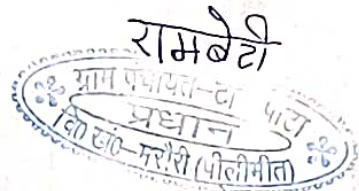 रामबेटी
ग्राम पंचायत-टा पारा
प्रधान
वि० खं०-मरौरी (पीलीभीत)